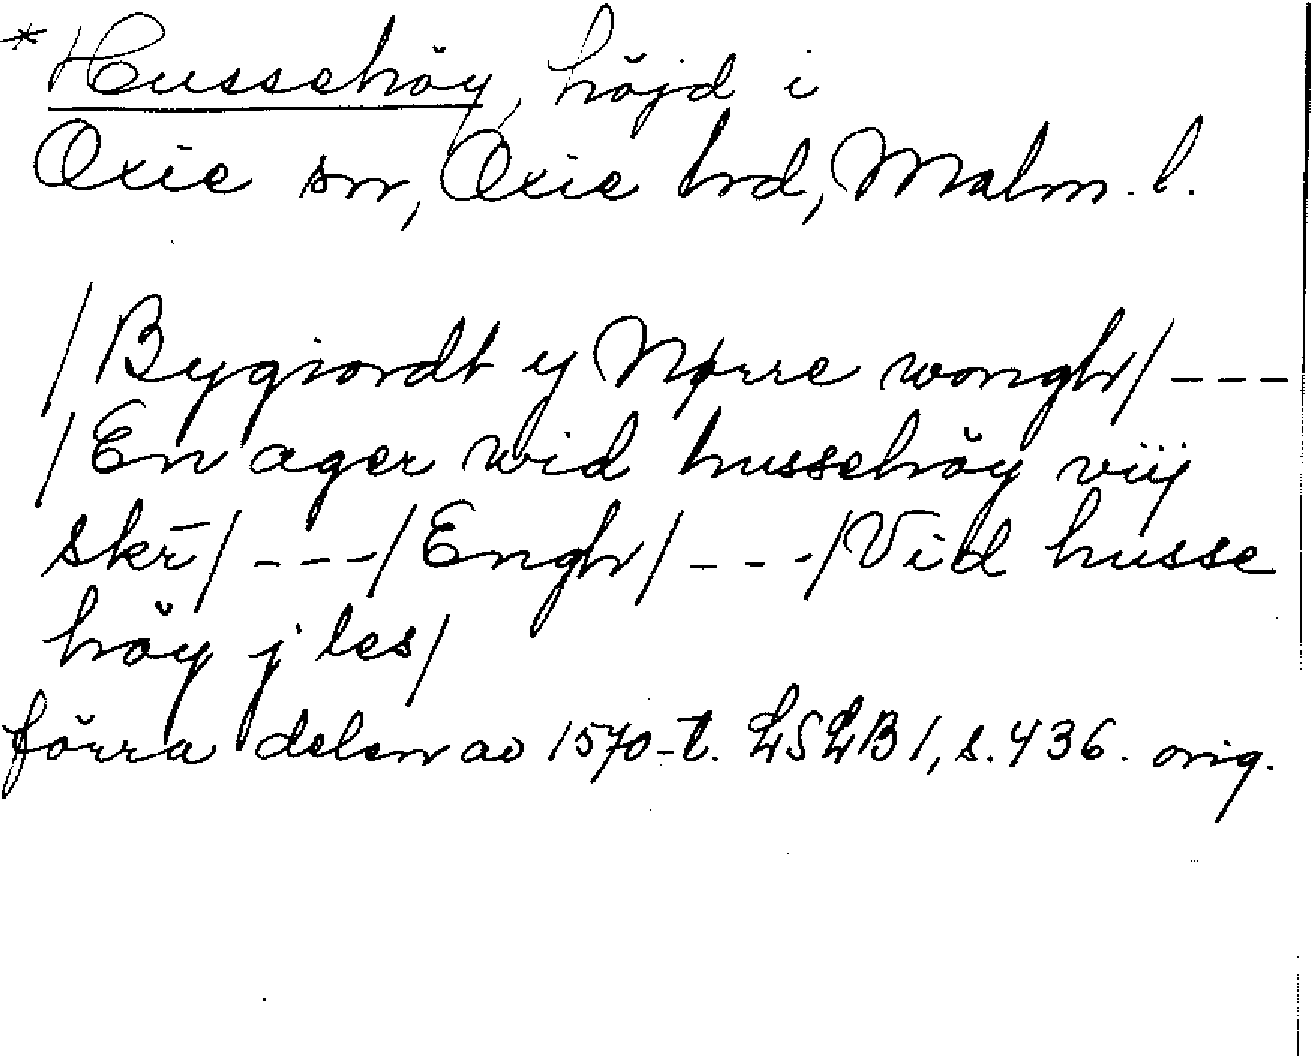 *Hussehöy, höjd i
Oxie sn, Oxie hrd, Malm. l.
/Bygiordt y Nørre wongh/ ---
/En ager wid hussehöy viij
skr̄/ ---/Engh/ ---/Vid husse
höy j les/
förra delen av 1570-t. LSLB 1, s. 436. orig.